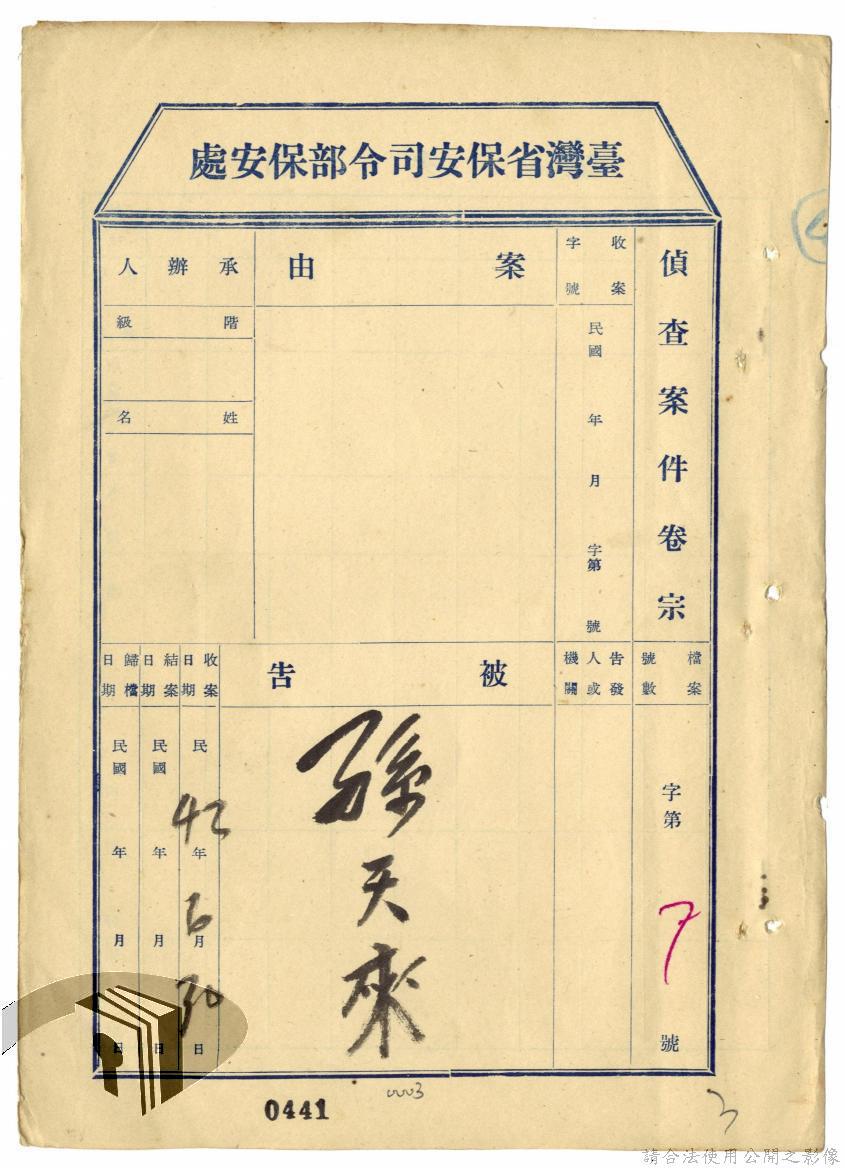 臺灣省保安司令部保安處
偵查案件卷宗
收案字號
民國 年 月 字第 號
案由
承辦人
階級
姓名
檔案號數
字第 7 號
告發人或機關
被告
孫天來
收案日期
民 42 年 5 月 30 日
結案日期
民國 年 月 日
歸檔日期
民國 年 月 日
0441
0003
3
請合法使用公開之影像